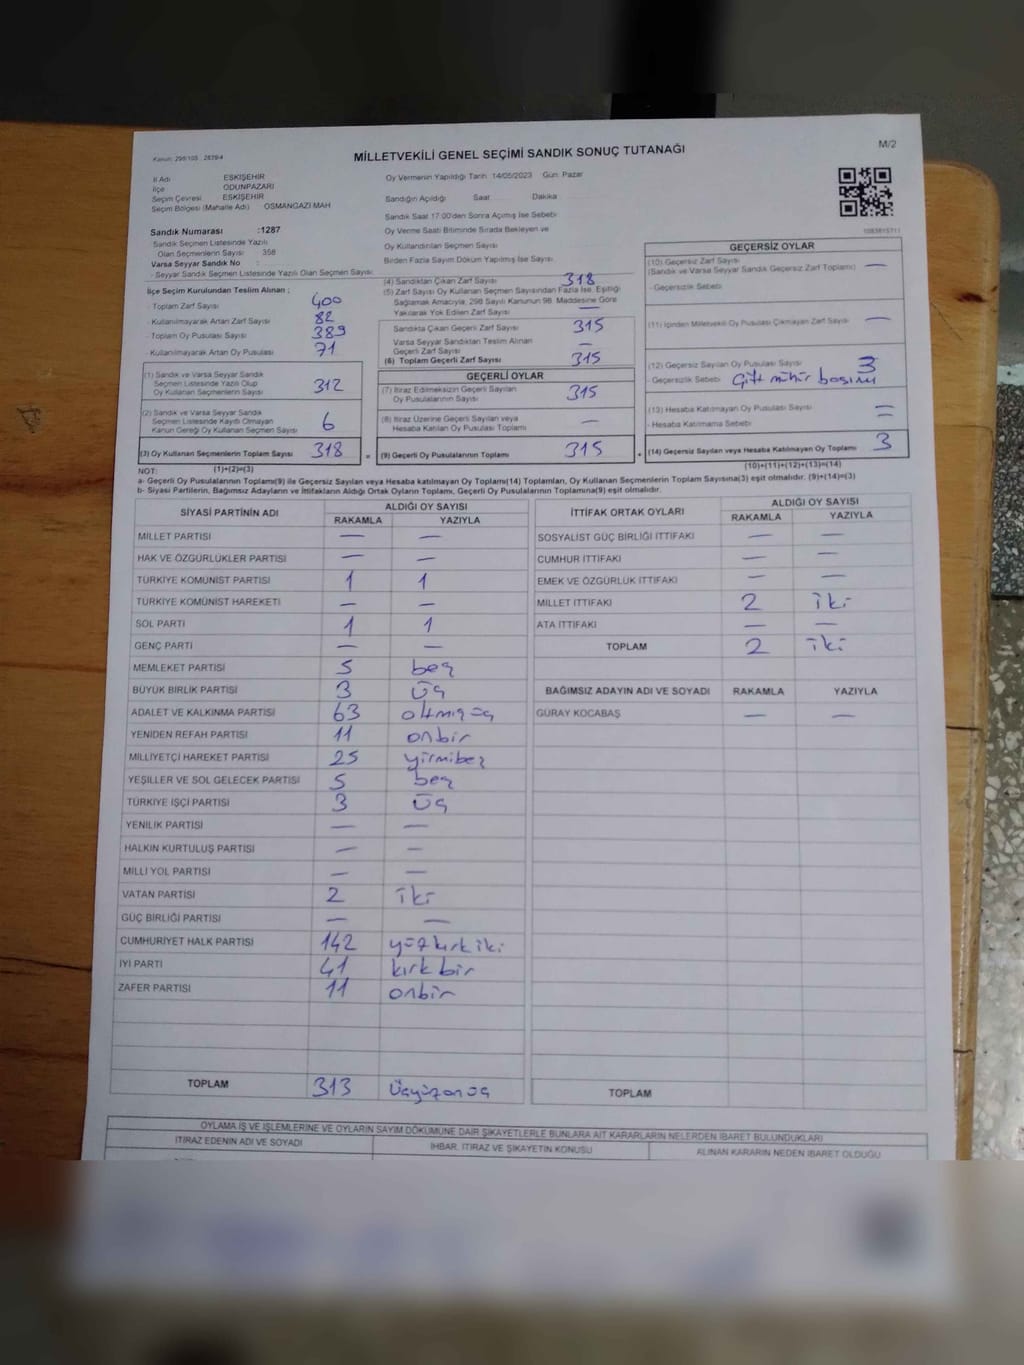 Kanun: 298/105 2839/4
MİLLETVEKİLİ GENEL SEÇİMİ SANDIK SONUÇ TUTANAĞI
M/2
İl Adı ESKİŞEHİR
İlçe ODUNPAZARI
Seçim Çevresi ESKİŞEHİR
Seçim Bölgesi (Mahalle Adı) OSMANGAZİ MAH.
Oy Vermenin Yapıldığı Tarih 14/05/2023 Gün: Pazar
Sandığın Açıldığı Saat Dakika
Sandık Saat 17:00'den Sonra Açılmış İse Sebebi
Oy Verme Saati Bitiminde Sırada Bekleyen ve
Oy Kullandırılan Seçmen Sayısı
Birden Fazla Sayım Döküm Yapılmış İse Sayısı
Sandık Numarası :1287
Sandık Seçmen Listesinde Yazılı
Olan Seçmenlerin Sayısı 358
Varsa Seyyar Sandık No :
- Seyyar Sandık Seçmen Listesinde Yazılı Olan Seçmen Sayısı:
İlçe Seçim Kurulundan Teslim Alınan ;
- Toplam Zarf Sayısı 400
- Kullanılmayarak Artan Zarf Sayısı 82
- Toplam Oy Pusulası Sayısı 389
- Kullanılmayarak Artan Oy Pusulası 71
(1) Sandık ve Varsa Seyyar Sandık
Seçmen Listesinde Yazılı Olup
Oy Kullanan Seçmenlerin Sayısı 312
(2) Sandık ve Varsa Seyyar Sandık
Seçmen Listesinde Kayıtlı Olmayan
Kanun Gereği Oy Kullanan Seçmen Sayısı 6
(3) Oy Kullanan Seçmenlerin Toplam Sayısı 318
(1)+(2)=(3)
(4) Sandıktan Çıkan Zarf Sayısı 318
(5) Zarf Sayısı Oy Kullanan Seçmen Sayısından Fazla İse, Eşitliği
Sağlamak Amacıyla, 298 Sayılı Kanunun 98. Maddesine Göre
Yakılarak Yok Edilen Zarf Sayısı —
Sandıkta Çıkan Geçerli Zarf Sayısı 315
Varsa Seyyar Sandıktan Teslim Alınan
Geçerli Zarf Sayısı —
(6) Toplam Geçerli Zarf Sayısı 315
GEÇERLİ OYLAR
(7) İtiraz Edilmeksizin Geçerli Sayılan
Oy Pusulalarının Sayısı 315
(8) İtiraz Üzerine Geçerli Sayılan veya
Hesaba Katılan Oy Pusulası Toplamı —
= (9) Geçerli Oy Pusulalarının Toplamı 315
GEÇERSİZ OYLAR
(10) Geçersiz Zarf Sayısı
(Sandık ve Varsa Seyyar Sandık Geçersiz Zarf Toplamı) —
- Geçersizlik Sebebi
(11) İçinden Milletvekili Oy Pusulası Çıkmayan Zarf Sayısı —
(12) Geçersiz Sayılan Oy Pusulası Sayısı 3
- Geçersizlik Sebebi Çift mühür basımı
(13) Hesaba Katılmayan Oy Pusulası Sayısı —
- Hesaba Katılmama Sebebi —
+ (14) Geçersiz Sayılan veya Hesaba Katılmayan Oy Toplamı 3
(10)+(11)+(12)+(13)=(14)
NOT:
a- Geçerli Oy Pusulalarının Toplamı(9) ile Geçersiz Sayılan veya Hesaba katılmayan Oy Toplamı(14) Toplamları, Oy Kullanan Seçmenlerin Toplam Sayısına(3) eşit olmalıdır. (9)+(14)=(3)
b- Siyasi Partilerin, Bağımsız Adayların ve İttifakların Aldığı Ortak Oyların Toplamı, Geçerli Oy Pusulalarının Toplamına(9) eşit olmalıdır.
SİYASİ PARTİNİN ADI ALDIĞI OY SAYISI
RAKAMLA YAZIYLA
MİLLET PARTİSİ — —
HAK VE ÖZGÜRLÜKLER PARTİSİ — —
TÜRKİYE KOMÜNİST PARTİSİ 1 1
TÜRKİYE KOMÜNİST HAREKETİ — —
SOL PARTİ 1 1
GENÇ PARTİ — —
MEMLEKET PARTİSİ 5 beş
BÜYÜK BİRLİK PARTİSİ 3 üç
ADALET VE KALKINMA PARTİSİ 63 altmışüç
YENİDEN REFAH PARTİSİ 11 onbir
MİLLİYETÇİ HAREKET PARTİSİ 25 yirmibeş
YEŞİLLER VE SOL GELECEK PARTİSİ 5 beş
TÜRKİYE İŞÇİ PARTİSİ 3 üç
YENİLİK PARTİSİ — —
HALKIN KURTULUŞ PARTİSİ — —
MİLLİ YOL PARTİSİ — —
VATAN PARTİSİ 2 iki
GÜÇ BİRLİĞİ PARTİSİ — —
CUMHURİYET HALK PARTİSİ 142 yüzkırkiki
İYİ PARTİ 41 kırkbir
ZAFER PARTİSİ 11 onbir
TOPLAM 313 Üçyüzonüç
İTTİFAK ORTAK OYLARI ALDIĞI OY SAYISI
RAKAMLA YAZIYLA
SOSYALİST GÜÇ BİRLİĞİ İTTİFAKI — —
CUMHUR İTTİFAKI — —
EMEK VE ÖZGÜRLÜK İTTİFAKI — —
MİLLET İTTİFAKI 2 iki
ATA İTTİFAKI — —
TOPLAM 2 iki
BAĞIMSIZ ADAYIN ADI VE SOYADI RAKAMLA YAZIYLA
GÜRAY KOCABAŞ — —
TOPLAM
OYLAMA İŞ VE İŞLEMLERİNE VE OYLARIN SAYIM DÖKÜMÜNE DAİR ŞİKAYETLERLE BUNLARA AİT KARARLARIN NELERDEN İBARET BULUNDUKLARI
İTİRAZ EDENİN ADI VE SOYADI İHBAR, İTİRAZ VE ŞİKAYETİN KONUSU ALINAN KARARIN NEDEN İBARET OLDUĞU